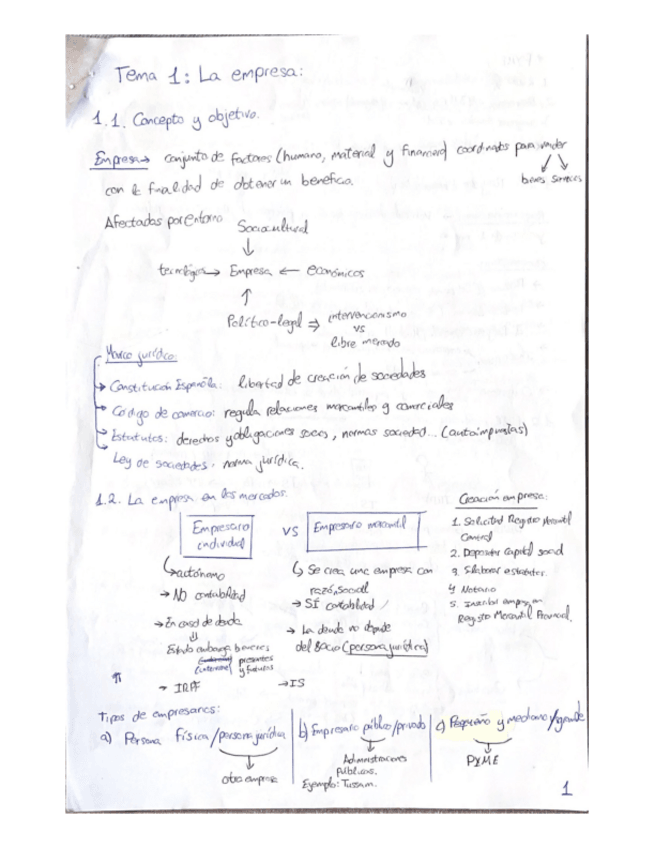 Tema 1: La empresa:
1.1. Concepto y objetivo.
Empresa → conjunto de factores (humano, material y financiero) coordinados para vender
bienes servicios
con la finalidad de obtener un beneficio.
Afectados por entorno
Sociocultural
tecnológicos → Empresa ← económicos
Político-legal ⇒ intervencionismo
vs
libre mercado
Marco jurídico:
Constitución Española: libertad de creación de sociedades
Código de comercio: regula relaciones mercantiles y comerciales
Estatutos: derechos y obligaciones socios, normas sociedad... (autoimpuestas)
Ley de sociedades. norma jurídica.
1.2. La empresa en los mercados.
Empresario individual
vs
Empresario mercantil
↳ autónomo
→ NO contabilidad
→ En caso de deuda
Estado embarga bienes
presentes
y futuros
→ IRPF
↳ Se crea una empresa con
razón social
→ SÍ contabilidad
→ La deuda no depende
del socio (persona jurídica)
→ IS
Creación empresa:
1. Solicitud Registro Mercantil
Central
2. Depositar Capital social
3. Elaborar estatutos.
4 Notario
5. Inscribir empresa en
Registro Mercantil Provincial.
Tipos de empresarios:
a) Persona física/persona jurídica
otra empresa
b) Empresario público/privado
Administraciones
Públicas.
Ejemplo: Tussam.
c) Pequeño y mediano/grande
PYME
1